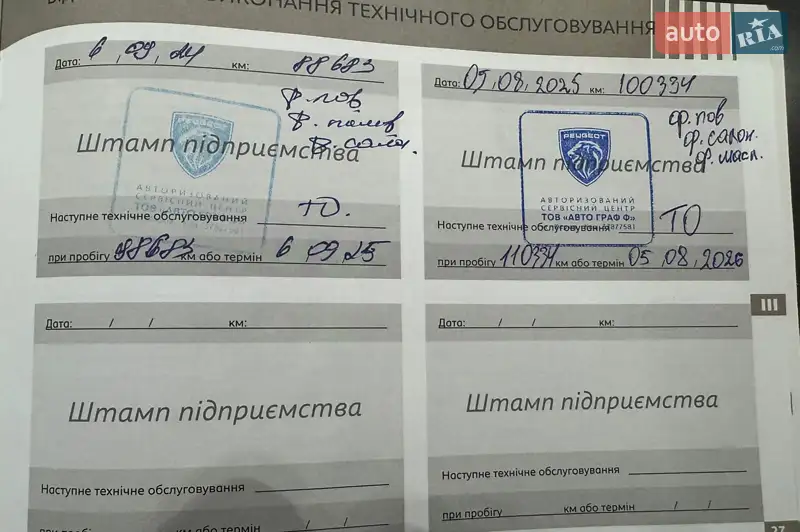 ВИКОНАННЯ ТЕХНІЧНОГО ОБСЛУГОВУВАННЯ
auto RIA.com
Дата: 6, 09, 24 км: 88683
ф. пов
ф. палив
ф. салон.
Штамп підприємства
АВТОРИЗОВАНИЙ
СЕРВІСНИЙ ЦЕНТР
ТОВ «АВТО
Наступне технічне обслуговування ТО.
при пробігу 98683 км або термін 6 09 25
Дата: 05, 08, 2025 км: 100334
ф. пов
ф. салон.
ф. масл.
PEUGEOT
Штамп підприємства
АВТОРИЗОВАНИЙ
СЕРВІСНИЙ ЦЕНТР
ТОВ «АВТО ГРАФ Ф»
Наступне технічне обслуговування ТО
при пробігу 110334 км або термін 05, 08, 2026
III
Дата: / / км:
Штамп підприємства
Наступне технічне обслуговування
при пробігу км або термін / /
Дата: / / км:
Штамп підприємства
Наступне технічне обслуговування
при пробігу км або термін / /
27